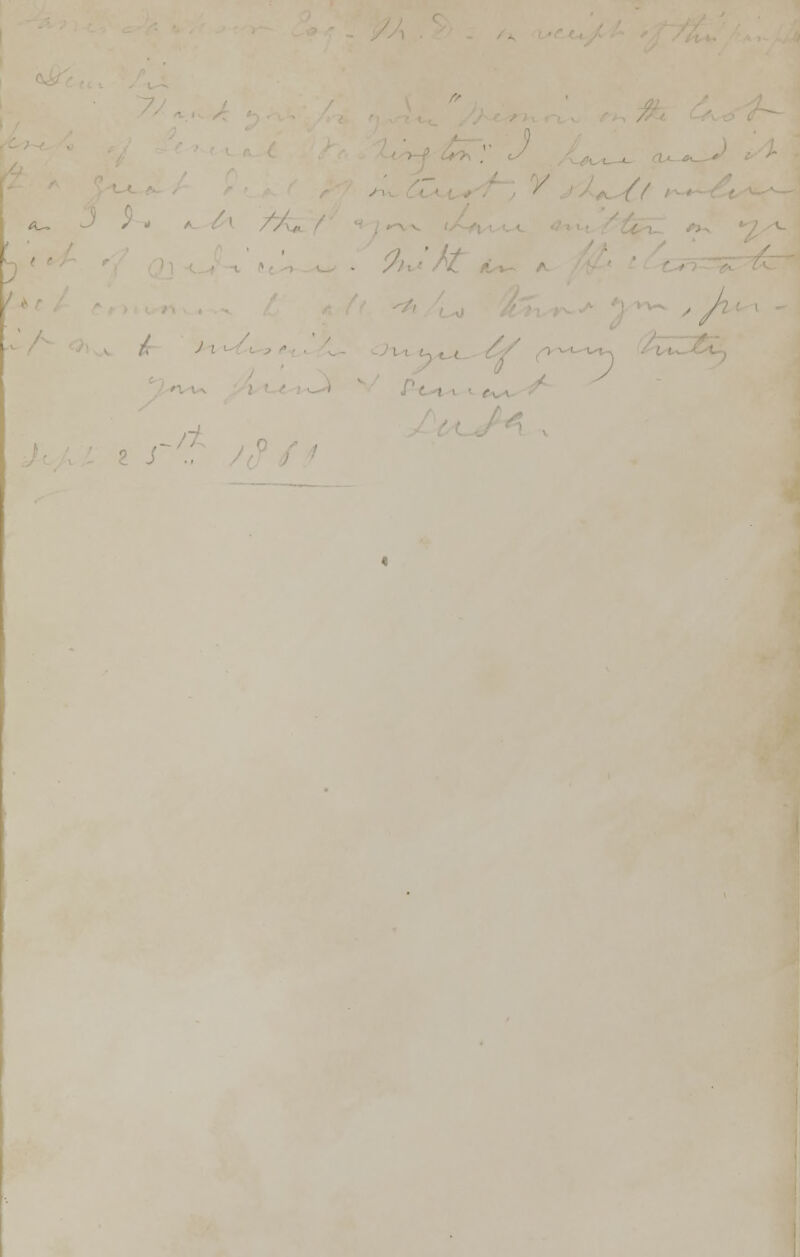 James Jackson Esq. M.D. - in receipt of this pamph
Dear Sir
Thank you for your "Memoir on the Last
of General Washington." I have read it
a great deal of interest, & shall value
as I do all that you have written on
of Medicine. With an affectionate
to all who know you, per-
me to subscribe myself very truly
your friend & servant
Sept 25th 1861